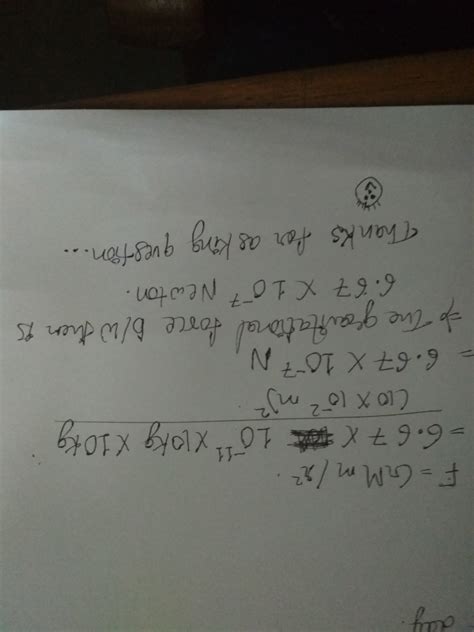 day.
F = GMm/r²
= 6.67 X 10⁻¹¹ X 10kg X 10kg
(10 X 10⁻² m)²
= 6.67 X 10⁻⁷ N
⇒ The gravitational force b/w them is
6.67 X 10⁻⁷ Newton.
Thanks for asking question...